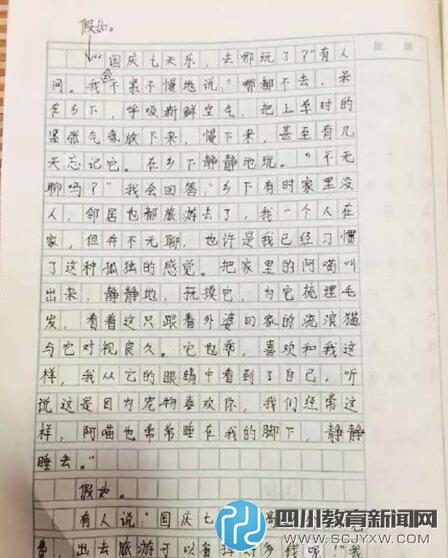 假如。
“国庆七天乐,去哪玩了?”有人
问。我会不紧不慢地说,“哪都不去,呆
在乡下,呼吸新鲜空气,把上学时的
紧张气氛放下来,慢下来,甚至有几
天忘记它。在乡下静静地玩。”“不无
聊吗?”我会回答,“乡下有时家里没
人,邻居也都旅游去了,我一个人在
家,但并不无聊,也许是我已经习惯
了这种孤独的感觉。把家里的阿喵叫
出来,静静地,抚摸它,为它梳理毛
发,看着这只跟着外婆回家的流浪猫
与它对视良久。它也乖,喜欢和我这
样,我从它的眼睛中看到了自己,听
说这是因为宠物喜欢你,我们经常这
样,阿喵也常常睡在我的脚下,静静
睡去。”
假如。
有人说:“国庆七
费,出去旅游可以省好多钱呢!”我
四川教育新闻网
WWW.SCJYXW.COM